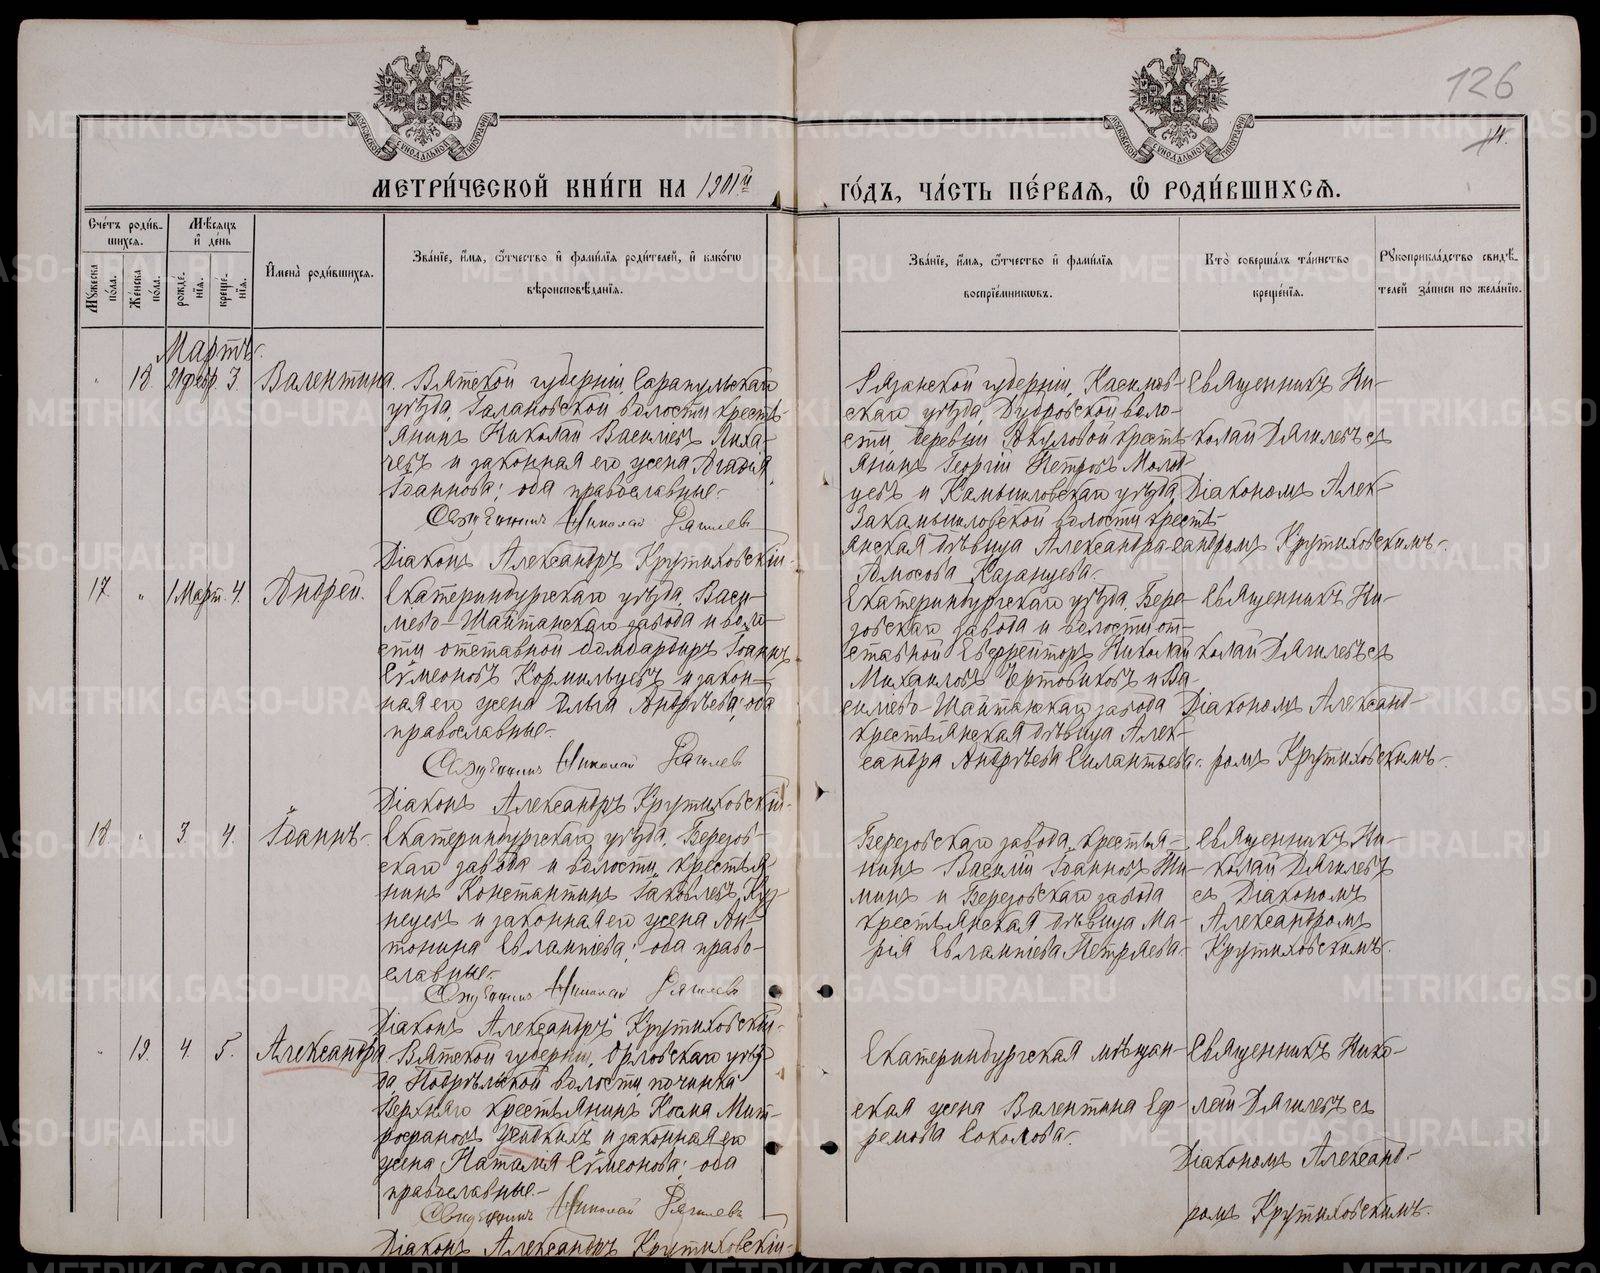 126
14.
МОСКОВСКОЙ СѴНОДАЛЬНОЙ ТИПОГРАФІИ
МОСКОВСКОЙ СѴНОДАЛЬНОЙ ТИПОГРАФІИ
МЕТРИ́ЧЕСКОЙ КНИ́ГИ НА 1901й
ГО́ДЪ, ЧА́СТЬ ПЕ́РВАЯ, Ѡ҆ РОДИ́ВШИХСЯ.
Сче́тъ роди́в-
шихся.
Мѣ́сяцъ
и҆ де́нь
Мꙋ́жеска
по́ла.
Же́нска
по́ла.
рожде́-
нїя.
креще́-
нїя.
И҆мена̀ роди́вшихся.
Зва́нїе, и҆́мя, ѻ҆́тчество и҆ фами́лїя роди́телей, и҆ како́гѡ
вѣроисповѣ́данїя.
Зва́нїе, и҆́мя, ѻ҆́тчество и҆ фами́лїя
воспрїе́мникѡвъ.
Кто̀ соверша́лъ та́инство
креще́нїя.
Рꙋкоприкла́дство свидѣ́-
телей за́писи по жела́нїю.
Мартъ.
" 18. 21 февр. 3. Валентина.
Вятской губерніи, Сарапульскаго
уѣзда, Галановской волости, кресть-
янинъ Николай Васильевъ Лиха-
чевъ и законная его жена Агафія
Іоаннова; оба православные.
Священникъ Николай Дягилевъ
Діаконъ Александръ Крутиховскій.
Рязанской губерніи, Касимов-
скаго уѣзда, Дубровской воло-
сти, деревни Акуловой кресть-
янинъ Георгій Петровъ Молод
цевъ и Камышловскаго уѣзда,
Закамышловской волости кресть-
янская дѣвица Александра
Амосова Казанцева.
Священникъ Ни-
колай Дягилевъ съ
Діакономъ Алек-
сандромъ Крутиховскимъ.
17. " 1 Март. 4. Андрей.
Екатеринбургскаго уѣзда, Васи-
льево-Шайтанскаго завода и воло-
сти отставной бомбардиръ Іоаннъ
Сѵмеоновъ Кормильцевъ и закон-
ная его жена Ольга Андреева; оба
православные.
Священникъ Николай Дягилевъ
Діаконъ Александръ Крутиховскій.
Екатеринбургскаго уѣзда, Бере-
зовскаго завода и волости от-
ставной Ефрейторъ Николай
Михаиловъ Чертовиковъ и Ва-
сильево-Шайтанскаго завода
крестьянская дѣвица Алек-
сандра Андреева Силантьева.
Священникъ Ни-
колай Дягилевъ съ
Діакономъ Александ-
ромъ Крутиховскимъ.
18. " 3. 4. Іоаннъ.
Екатеринбургскаго уѣзда, Березов-
скаго завода и волости, крестья-
нинъ Константинъ Іаковлевъ Куз-
нецовъ и законная его жена Ан-
тонина Евлампіева; оба право-
славные.
Священникъ Николай Дягилевъ
Діаконъ Александръ Крутиховскій.
Березовскаго завода, крестья-
нинъ Василій Іоанновъ Ни-
минъ и Березовскаго завода
крестьянская дѣвица Ма-
рія Евлампіева Петряева.
Священникъ Ни-
колай Дягилевъ
съ Діакономъ
Александромъ
Крутиховскимъ.
" 19. 4. 5. Александра
Вятской губерніи, Орловскаго уѣз-
да, Подрѣльской волости, починка
Верхняго крестьянинъ Косма Мит-
рофановъ и законная его
жена Наталія Сѵмеонова; оба
православные.
Священникъ Николай Дягилевъ
Діаконъ Александръ Крутиховскій.
Екатеринбургская мѣщан-
ская жена Валентина Еф-
ремова Соколова.
Священникъ Нико-
лай Дягилевъ съ
Діакономъ Александ-
ромъ Крутиховскимъ.
METRIKI.GASO-URAL.RU